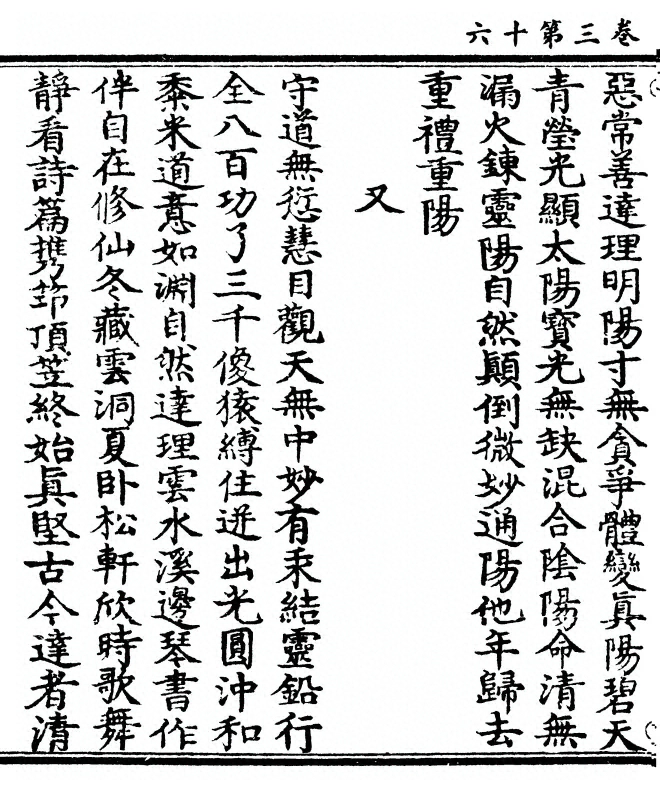 卷三第十六
惡常善達理明陽寸無貪爭體變眞陽碧天
青瑩光顯太陽寶光無缺混合陰陽命清無
漏火鍊靈陽自然顚倒微妙通陽他年歸去
重禮重陽
又
守道無愆慧目觀天無中妙有汞結靈鉛行
全八百功了三千傻猿縛住迸出光圓沖和
黍米道意如淵自然達理雲水溪邊琴書作
伴自在修仙冬藏雲洞夏卧松軒欣時歌舞
靜看詩篇携筇頂笠終始眞堅古今達者清